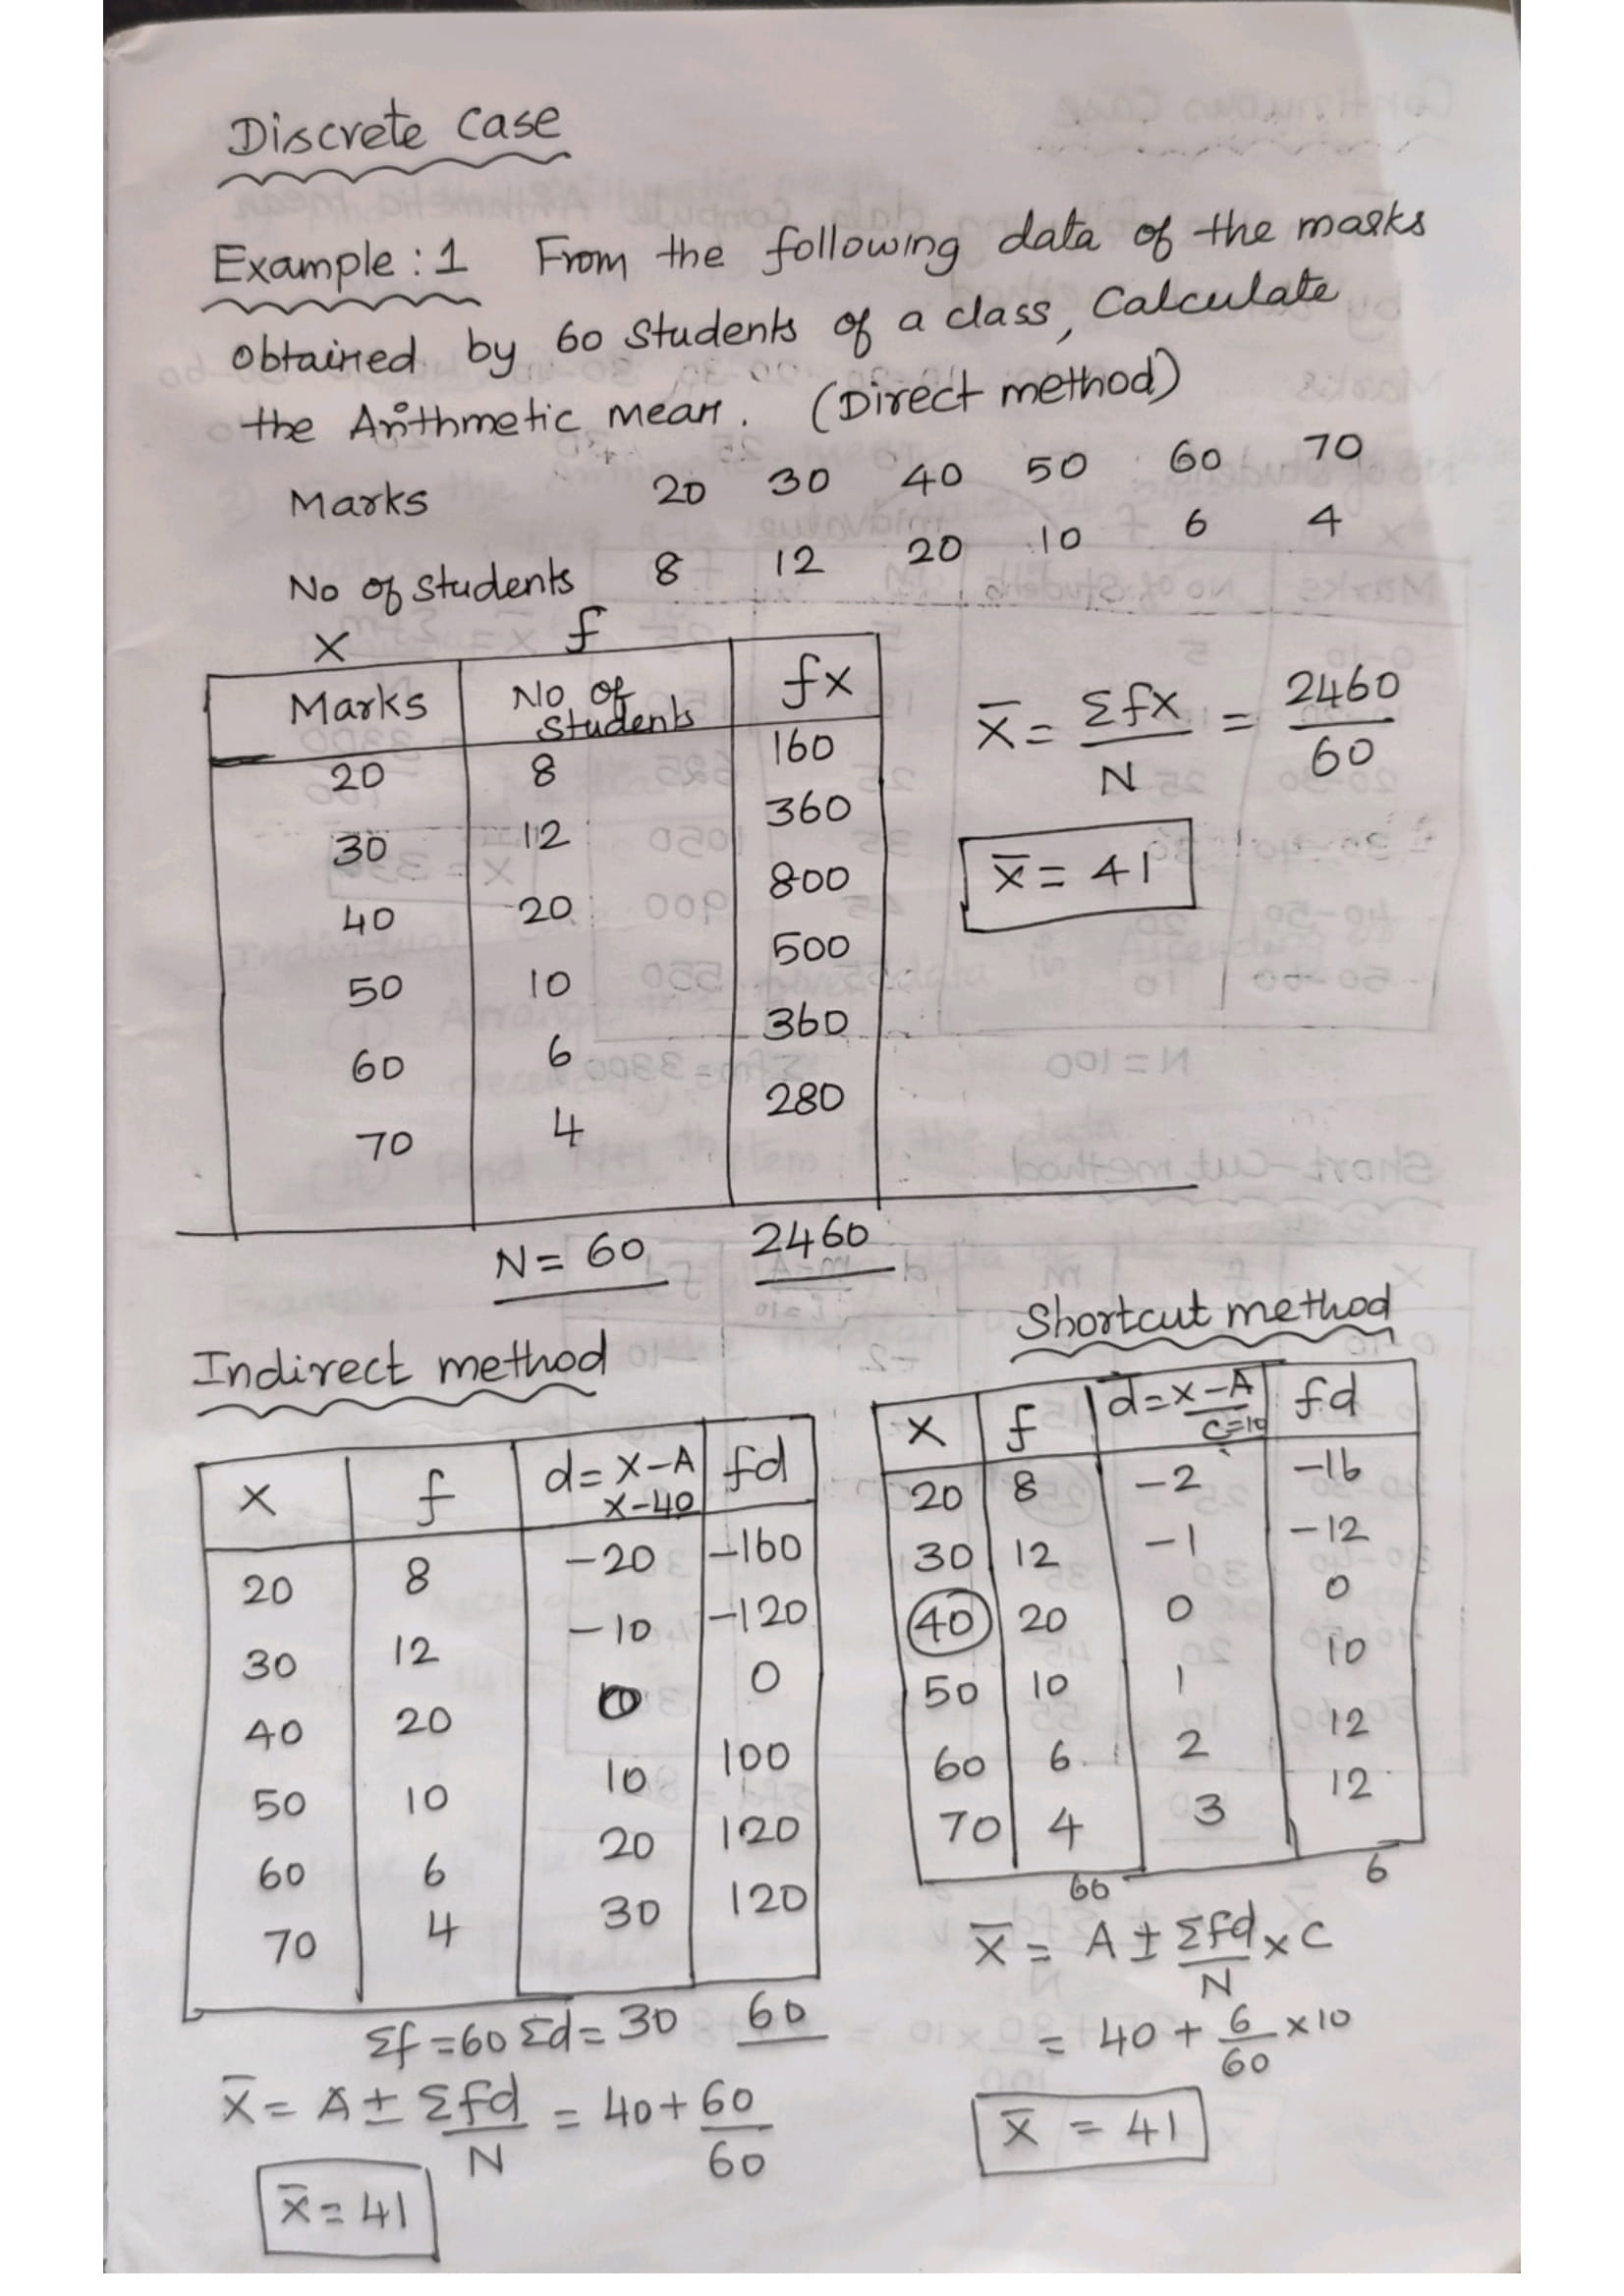 Discrete Case
Example : 1 From the following data of the marks
obtained by 60 Students of a class, Calculate
the Arithmetic mean. (Direct method)
Marks 20 30 40 50 60 70
No of students 8 12 20 10 6 4
x f
Marks No of Students fx
20 8 160
30 12 360
40 20 800
50 10 500
60 6 360
70 4 280
N = 60 2460
x̄ = Σfx / N = 2460 / 60
x̄ = 41
Indirect method
x f d = x-A x-40 fd
20 8 -20 -160
30 12 -10 -120
40 20 0 0
50 10 10 100
60 6 20 120
70 4 30 120
Σf = 60 Σd = 30 60
x̄ = A ± Σfd / N = 40 + 60 / 60
x̄ = 41
Shortcut method
x f d = x-A / C=10 fd
20 8 -2 -16
30 12 -1 -12
40 20 0 0
50 10 1 10
60 6 2 12
70 4 3 12
60 6
x̄ = A ± Σfd / N × C
= 40 + 6 / 60 × 10
x̄ = 41